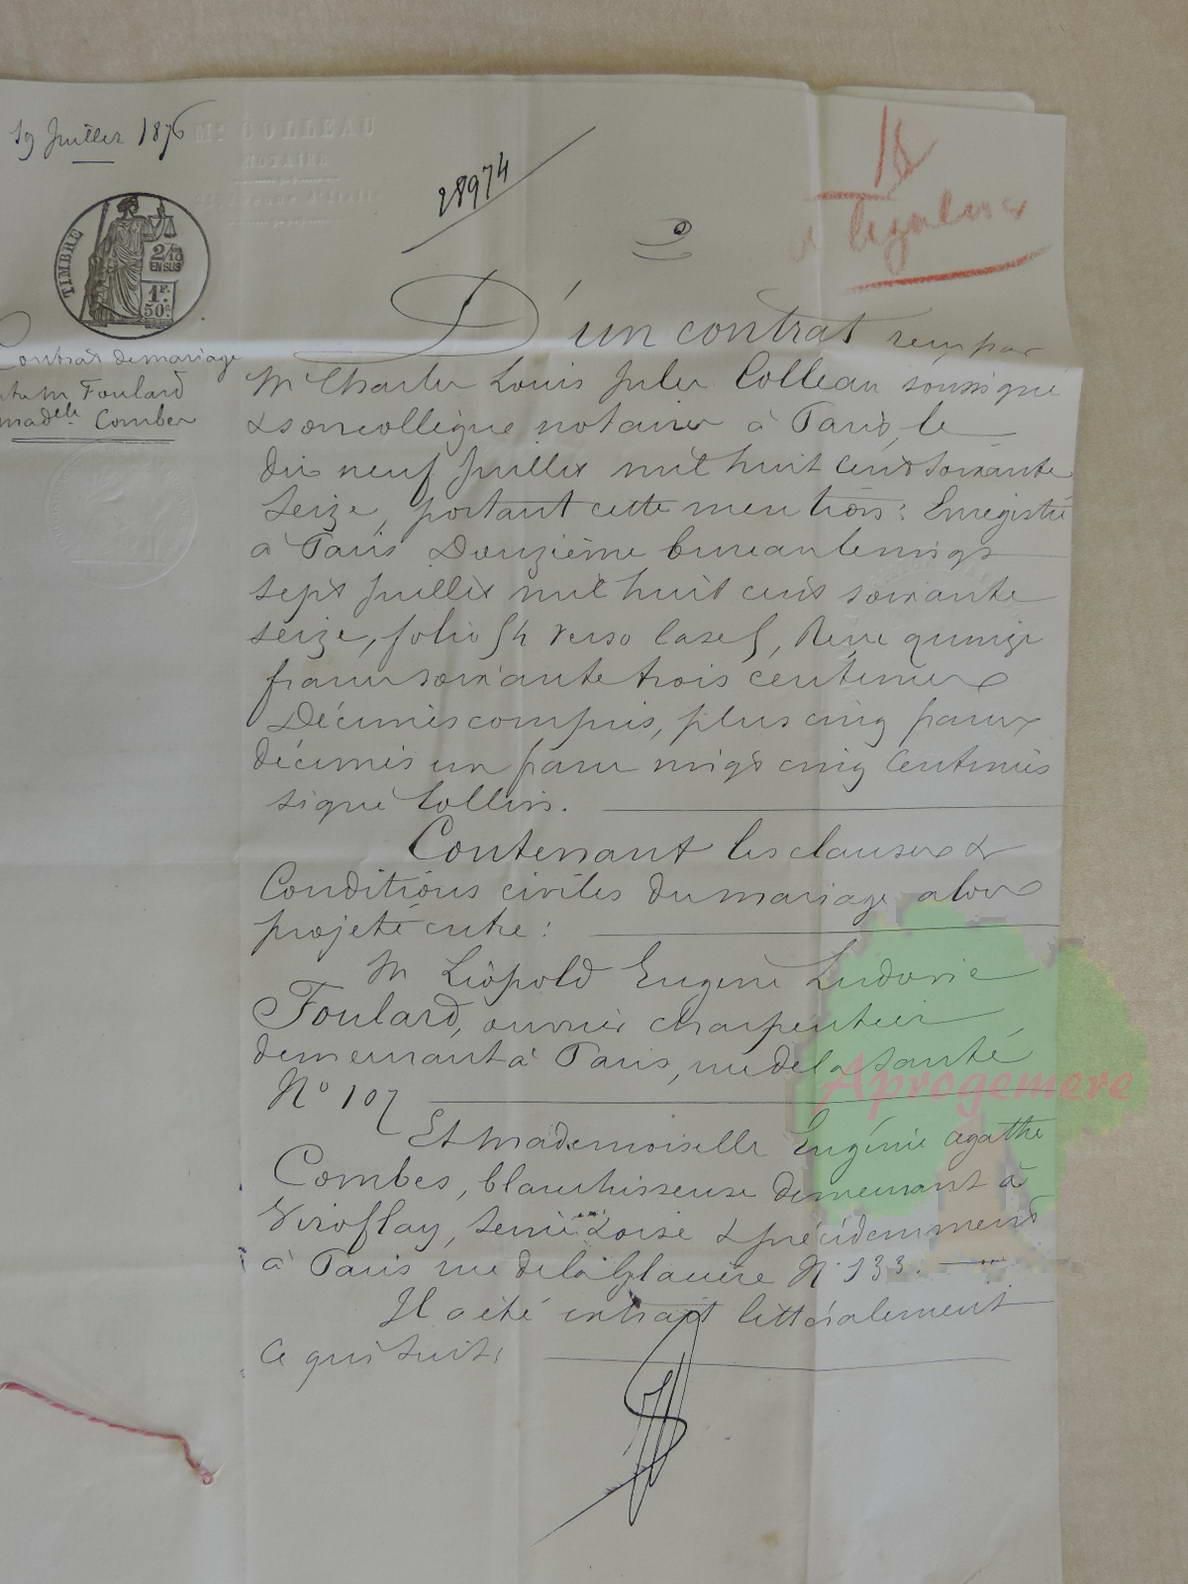 19 Juillet 1876
Me COLLEAU
NOTAIRE
28974
18
a légaliser
TIMBRE
2/10
EN SUS
1F.
50c.
Contrat de mariage
M Foulard
madelle Combes
D'un contrat reçu par
Me Charles Louis Jules Colleau soussigné
& son collègue notaires à Paris, le
dix neuf Juillet mil huit cent soixante
seize, portant cette mention : Enregistré
à Paris Douzième bureau le vingt
sept Juillet mil huit cent soixante
seize, folio 54 verso case 5, Reçu quinze
francs soixante trois centimes
Décimes compris, plus cinq francs
décimes un franc vingt cinq Centimes
signé Collin.
Contenant les clauses &
Conditions civiles du mariage alors
projeté entre :
M Léopold Eugène Ludovic
Foulard, ouvrier charpentier,
demeurant à Paris, rue de la Santé
No 107
Et Mademoiselle Eugénie Agathe
Combes, blanchisseuse demeurant à
Viroflay, Seine & Oise & précédemment
à Paris rue de la Glacière No 133.
Il a été extrait littéralement
Ce qui suit :
Aprogemere